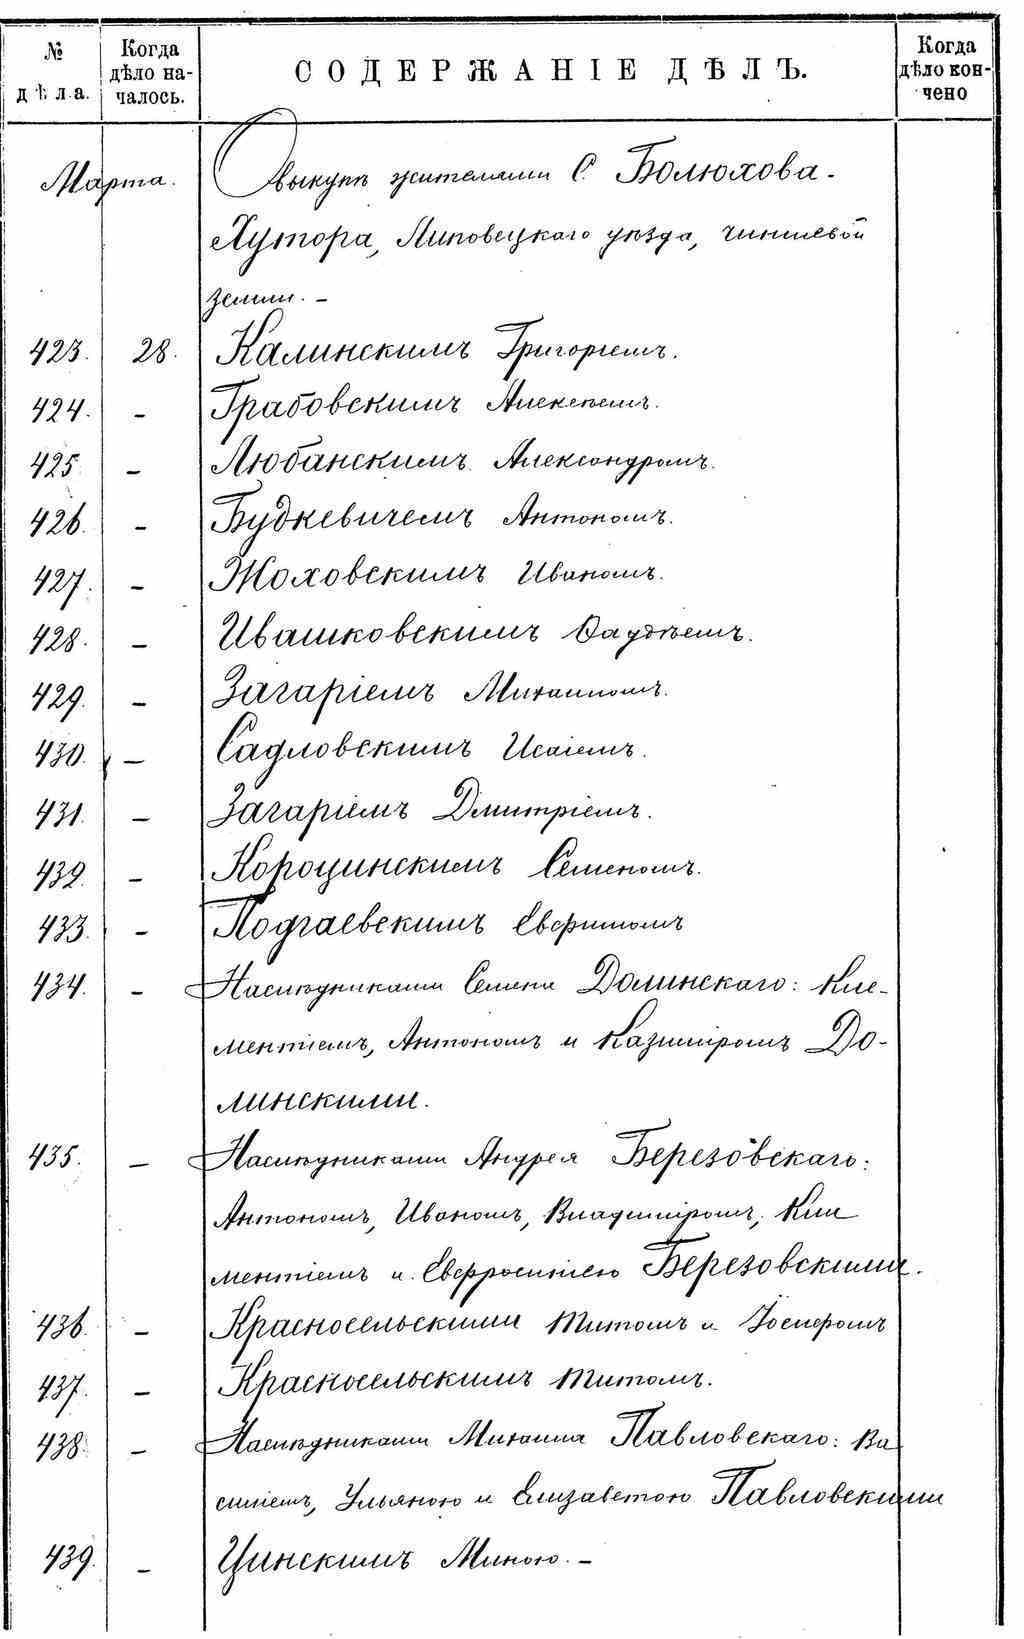 № дѣла.
Когда дѣло на-чалось.
СОДЕРЖАНІЕ ДѢЛЪ.
Когда дѣло кон-чено
Марта. О выкупѣ жителями С. Болюхова-
Хутора, Липовецкаго уѣзда, чиншевой
земли. –
423. 28. Калинскимъ Григоріемъ.
424. – Грабовскимъ Алексѣемъ.
425. – Любанскимъ Александромъ.
426. – Будкевичемъ Антономъ.
427. – Жоховскимъ Иваномъ.
428. – Ивашковскимъ Фаддѣемъ.
429. – Загаріемъ Михаиломъ.
430. – Садловскимъ Исаіемъ.
431. – Загаріемъ Дмитріемъ.
432. – Короцинскимъ Семеномъ.
433. – Подгаевскимъ Евфимомъ
434. – Наслѣдниками Семена Долинскаго: Кле-
ментіемъ, Антономъ и Казиміромъ До-
линскими.
435. – Наслѣдниками Андрея Березовскаго:
Антономъ, Иваномъ, Владиміромъ, Кли
ментіемъ и Евфросиніею Березовскими.
436. – Красносельскими Титомъ и Іосифомъ
437. – Красносельскимъ Титомъ.
438. – Наслѣдниками Михаила Павловскаго: Ва
силіемъ, Ульяною и Елизаветою Павловскими
439. – Цинскимъ Миною. –